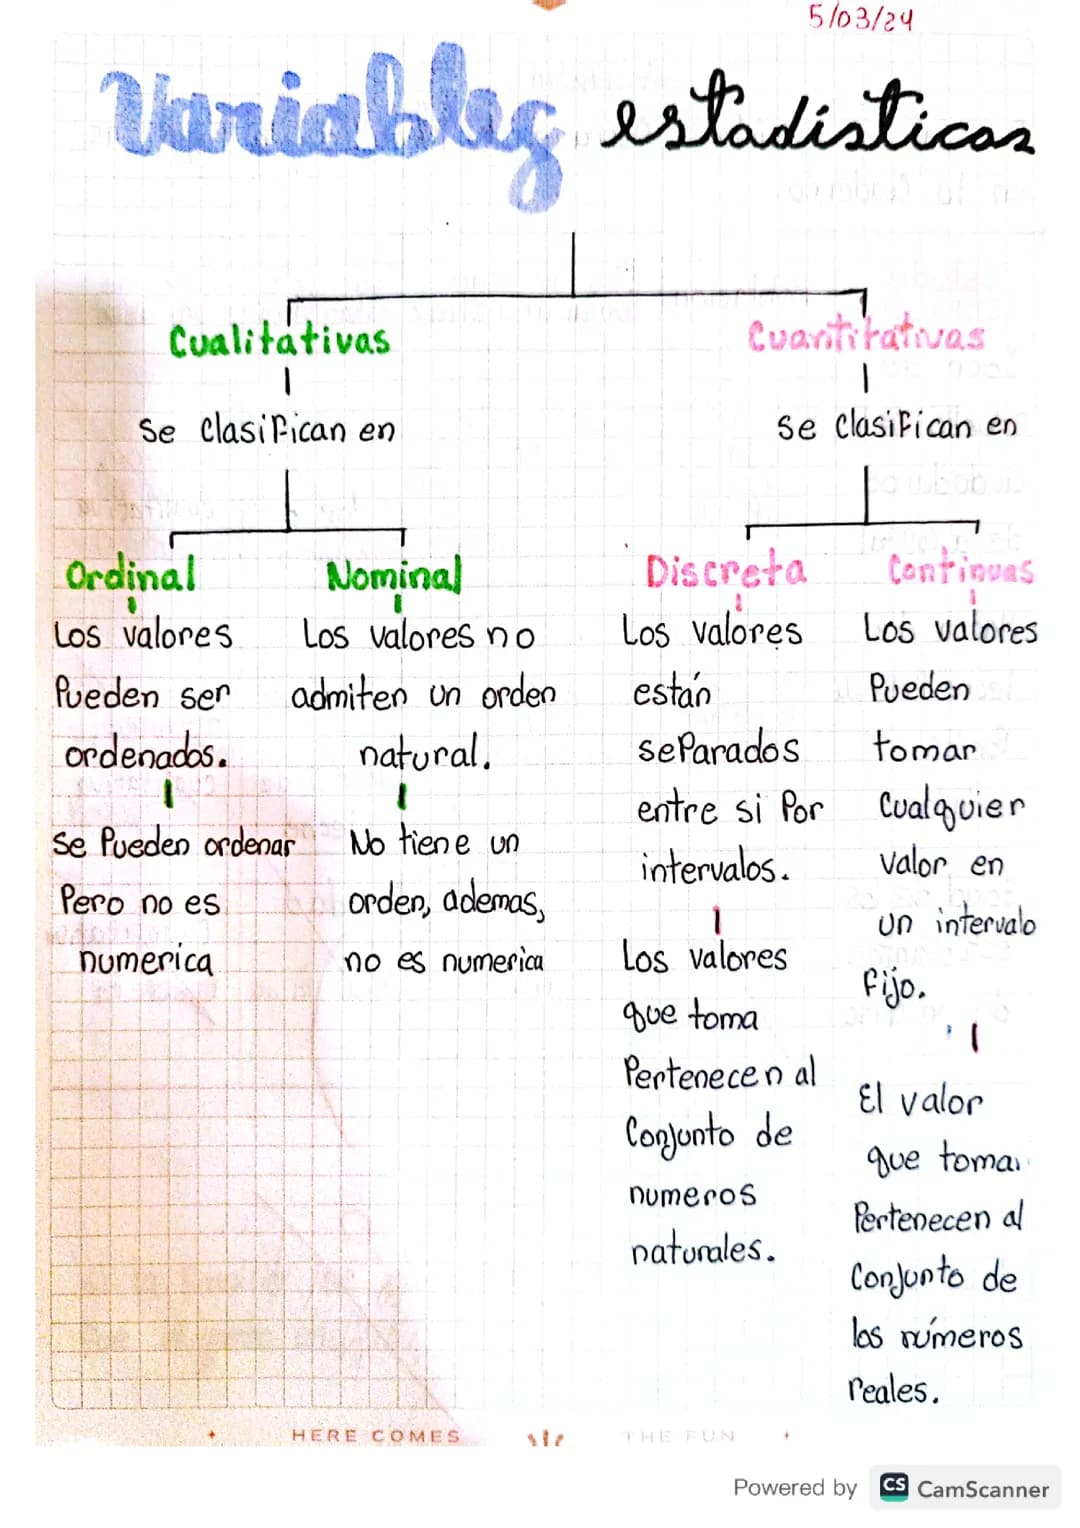 5/03/24
Variables estadísticas
Cualitativas
Se Clasifican en
Ordinal
Los valores
Pueden ser
ordenados.
Se Pueden ordenar
Pero no es
numerica
Nominal
Los valores no
admiten un orden
natural.
No tiene un
orden, ademas,
no es numerica
Cuantitativas
Se Clasifican en
Discreta
Los valores
están
separados
entre si Por
intervalos.
Los valores
que toma
Pertenecen al
Conjunto de
numeros
naturales.
Continuas
Los valores
Pueden
tomar
Cualquier
valor en
un intervalo
fijo.
El valor
que toma
Pertenecen al
Conjunto de
los números
reales.
HERE COMES
THE FUN
Powered by CS CamScanner